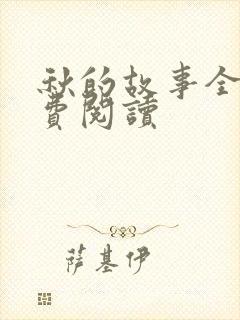 秋的故事全
費閱讀
萨基伊